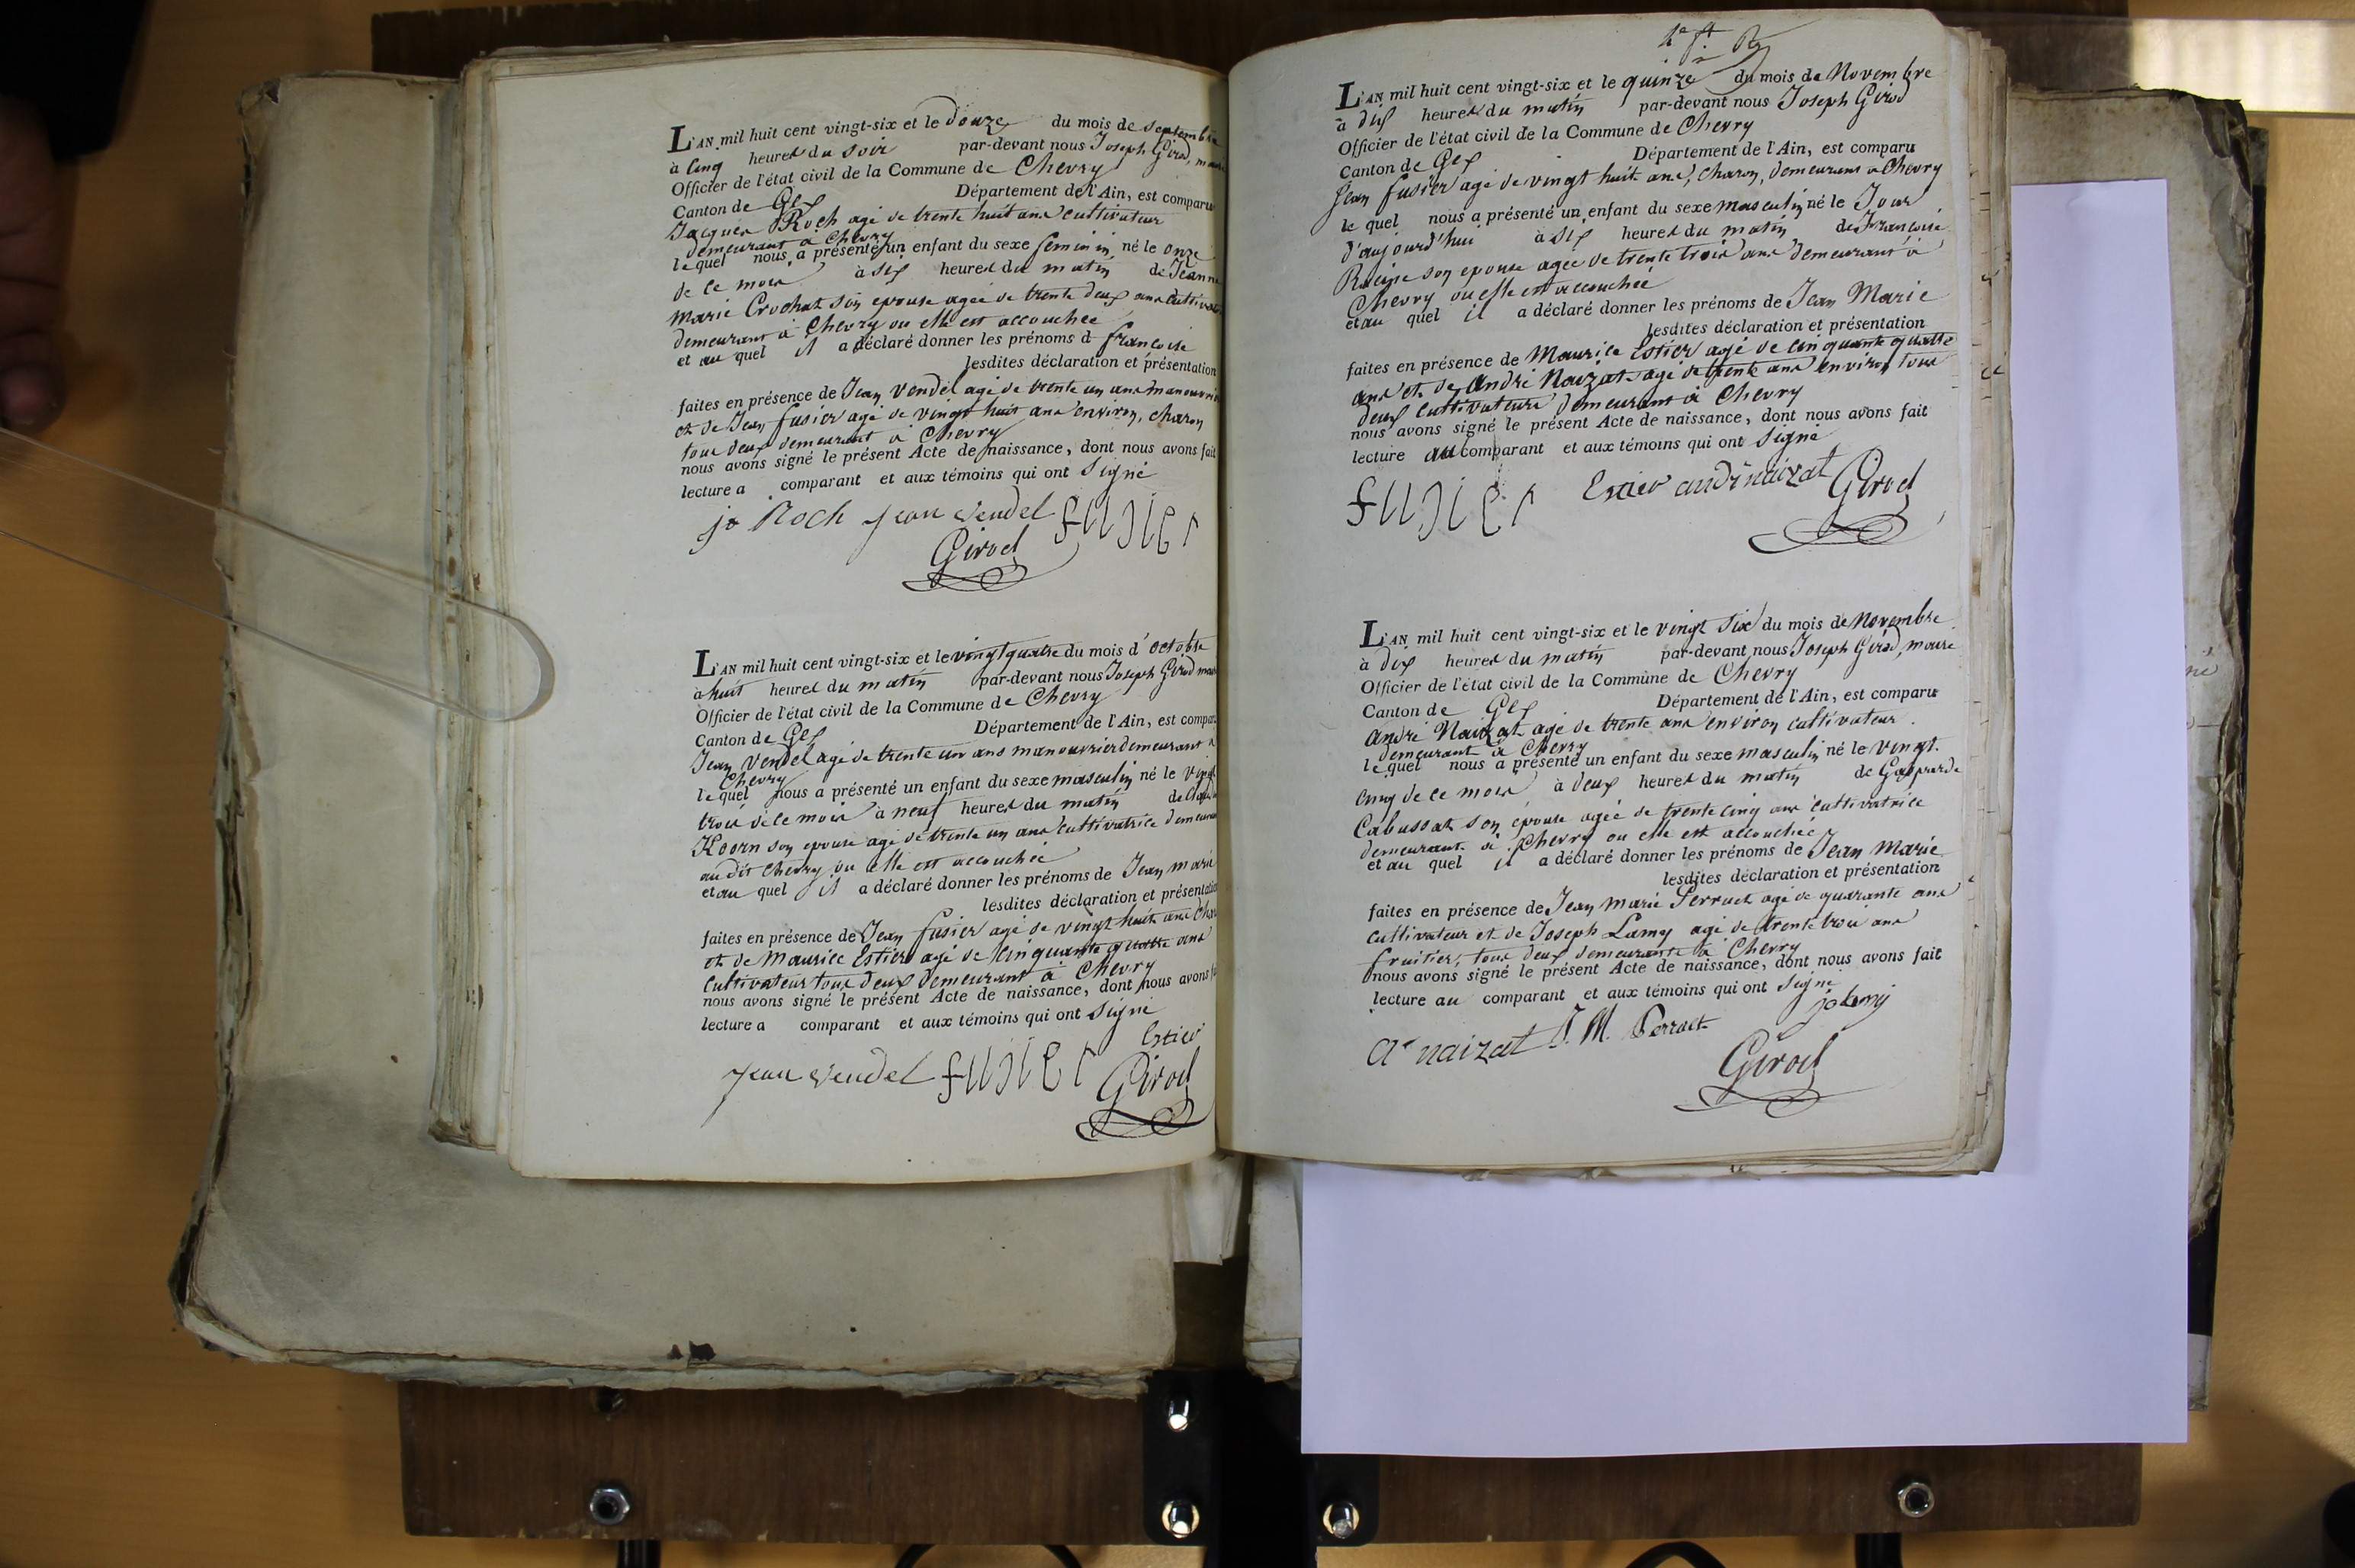 L'AN mil huit cent vingt-six et le douze du mois de septembre
à cinq heures du soir par-devant nous Joseph Girod, maire
Officier de l'état civil de la Commune de Chevry
Canton de Gex Département de l'Ain, est comparu
Jacques Roch agé de trente huit ans cultivateur
demeurant à Chevry
lequel nous a présenté un enfant du sexe feminin né le onze
de ce mois à six heures du matin de Jeanne
Marie Crochat son epouse agée de trente deux ans
demeurant à Chevry ou elle est accouchée
et au quel il a déclaré donner les prénoms d francoise
lesdites déclaration et présentation
faites en présence de Jean Vendel agé de trente un ans manouvrier
et de Jean fusier agé de vingt huit ans environ, charon
tous deux demeurant à Chevry
nous avons signé le présent Acte de naissance, dont nous avons fait
lecture a comparant et aux témoins qui ont signé
jq Roch jean vendel fusier
Girod
L'AN mil huit cent vingt-six et le vingt quatre du mois d'octobre
à huit heures du matin par-devant nous Joseph Girod
Officier de l'état civil de la Commune de Chevry
Canton de Gex Département de l'Ain, est compar
Jean Vendel agé de trente un ans manouvrier demeurant à
Chevry
lequel nous a présenté un enfant du sexe masculin né le vingt
trois de ce mois à neuf heures du matin de
Koorn son epouse agé de trente un ans cultivatrice
au dit Chevry ou elle est accouchée
et au quel il a déclaré donner les prénoms de Jean marie
lesdites déclaration et présentation
faites en présence de Jean fusier agé de vingt huit ans
et de Maurice Estier agé de cinquante quatre ans
cultivateur tous deux demeurant à Chevry
nous avons signé le présent Acte de naissance, dont nous avons
lecture a comparant et aux témoins qui ont signé
Estier
jean vendel fusier Girod
L'AN mil huit cent vingt-six et le quinze du mois de Novembre
à dix heures du matin par-devant nous Joseph Girod
Officier de l'état civil de la Commune de Chevry
Canton de Gex Département de l'Ain, est comparu
Jean fusier agé de vingt huit ans, charon, demeurant à Chevry
lequel nous a présenté un enfant du sexe masculin né le Jour
d'aujourd'hui à six heures du matin de Françoise
Racine son epouse agée de trente trois ans demeurant à
Chevry ou elle est accouchée
et au quel il a déclaré donner les prénoms de Jean Marie
lesdites déclaration et présentation
faites en présence de Maurice Estier agé de cinquante quatre
ans et de André Naizat agé de trente ans environ tous
deux cultivateurs demeurant à Chevry
nous avons signé le présent Acte de naissance, dont nous avons fait
lecture au comparant et aux témoins qui ont signé
fusier Estier andrinaizat Girod
L'AN mil huit cent vingt-six et le vingt six du mois de Novembre
à dix heures du matin par-devant nous Joseph Girod, maire
Officier de l'état civil de la Commune de Chevry
Canton de Gex Département de l'Ain, est comparu
André Naizat agé de trente ans environ cultivateur
demeurant à Chevry
lequel nous a présenté un enfant du sexe masculin né le vingt
cinq de ce mois à deux heures du matin de Gasparde
Cabussat son epouse agée de trente cinq ans cultivatrice
demeurant à Chevry ou elle est accouchée
et au quel il a déclaré donner les prénoms de Jean Marie
lesdites déclaration et présentation
faites en présence de Jean Marie Perruet agé de quarante ans
cultivateur et de Joseph Lamy agé de trente trois ans
fruitier, tous deux demeurants à Chevry
nous avons signé le présent Acte de naissance, dont nous avons fait
lecture au comparant et aux témoins qui ont signé
jo lamy
ae naizat J. M. Perruet
Girod